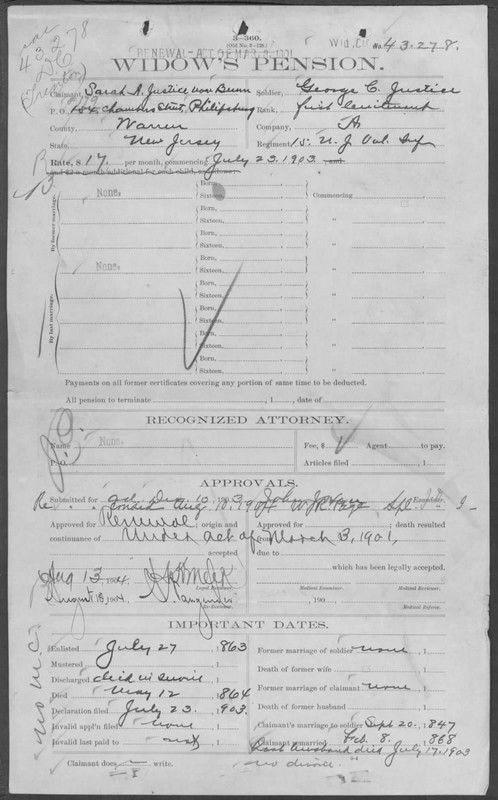 3-360.
(Old No. 3-129.)
RENEWAL-ACT OF MAR. 3, 1901
Wid. Ctf. No. 43.278.
43278
WIDOW'S PENSION.
Claimant, Sarah A. Justice now Bunn
Soldier, George C. Justice
P. O., Chambers Street, Philipsburg
Rank, first lieutenant
County, Warren
Company, A
State, New Jersey
Regiment, 15. N. J. Vol. Inf
Rate, $17. per month, commencing July 23. 1903. and
and $2 a month additional for each child, as follows:
By former marriage.
None.
Born, , .
Sixteen, , .
Commencing , .
Born, , .
Sixteen, , .
" , .
Born, , .
Sixteen, , .
" , .
Born, , .
Sixteen, , .
" , .
By last marriage.
None.
Born, , .
Sixteen, , .
" , .
Born, , .
Sixteen, , .
" , .
Born, , .
Sixteen, , .
" , .
Born, , .
Sixteen, , .
" , .
Payments on all former certificates covering any portion of same time to be deducted.
All pension to terminate , 1 , date of
RECOGNIZED ATTORNEY.
Name None.
Fee, $ Agent to pay.
P. O.
Articles filed , 1 .
APPROVALS.
Submitted for ad. Dec. 10, 1903, Examiner.
Aug 10, 1904
Approved for Renewal; origin and
Approved for ; death resulted
continuance of Under act of March 3, 1901,
accepted
due to
which has been legally accepted.
Aug 13, 1904,
Legal Reviewer.
Medical Examiner.
Medical Reviewer.
August 18, 1904,
Re-Reviewer.
, 190 .
Medical Referee.
IMPORTANT DATES.
Enlisted July 27 , 1863
Former marriage of soldier none , 1
Mustered , 1
Death of former wife , 1
Discharged died in service , 1
Former marriage of claimant none , 1
Died May 12 , 1864
Death of former husband , 1
Declaration filed July 23. , 1903.
Claimant's marriage to soldier Sept. 20. , 1847
Invalid appl'n filed none , 1
Claimant remarried Feb. 8. , 1868
Invalid last paid to not , 1
Last husband died July 17, 1903
Claimant does write.
no divorce.